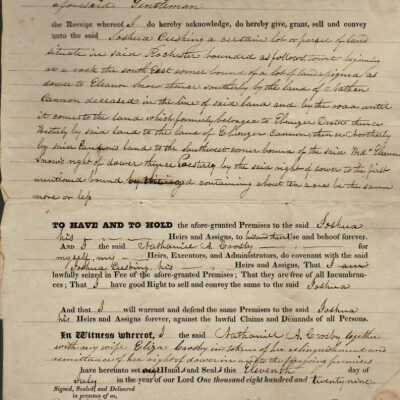 aforesaid Gentleman
the Receipt whereof I do hereby acknowledge, do hereby give, grant, sell and convey
unto the said Joshua Cushing a certain lot or parcel of land
situate in said Rochester bounded as follows viz begining
at a rock the south East corner bound of a lot of land assigned as
dower to Eleanor Snow thence southerly by the land of Nathan
Cannon deceased in the line of said land and by the road until
it comes to the land which formerly belonged to Ebenezer
Westerly by said land to the land of Ebenezer Cannon, then Northerly
by said Cannons land to the Southwest corner bound of the said Wd. Eleanor
Snow's right of dower thence Easterly by the said right of dower to the first
mentioned bound containing about ten acres be the same
more or less
TO HAVE AND TO HOLD the afore-granted Premises to the said Joshua
his Heirs and Assigns, to Use and behoof forever.
And I the said Nathaniel A. Crosby for
myself, my Heirs, Executors, and Administrators, do covenant with the said
Joshua Cushing, his Heirs and Assigns, That I am
lawfully seized in Fee of the afore-granted Premises; That they are free of all Incumbran-
ces; That I have good Right to sell and convey the same to the said Joshua
And that I will warrant and defend the same Premises to the said Joshua
his Heirs and Assigns forever, against the lawful Claims and Demands of all Persons.
In Witness whereof, I the said Nathaniel A. Crosby together
with my wife Eliza Crosby in token of her relinquishment and
remittance of her right of dower in and to the foregoing premises
have hereunto set our Hand and Seal this Eleventh day of
July in the year of our Lord One thousand eight hundred and twenty nine
Signed, Sealed and Delivered
in presence of us,